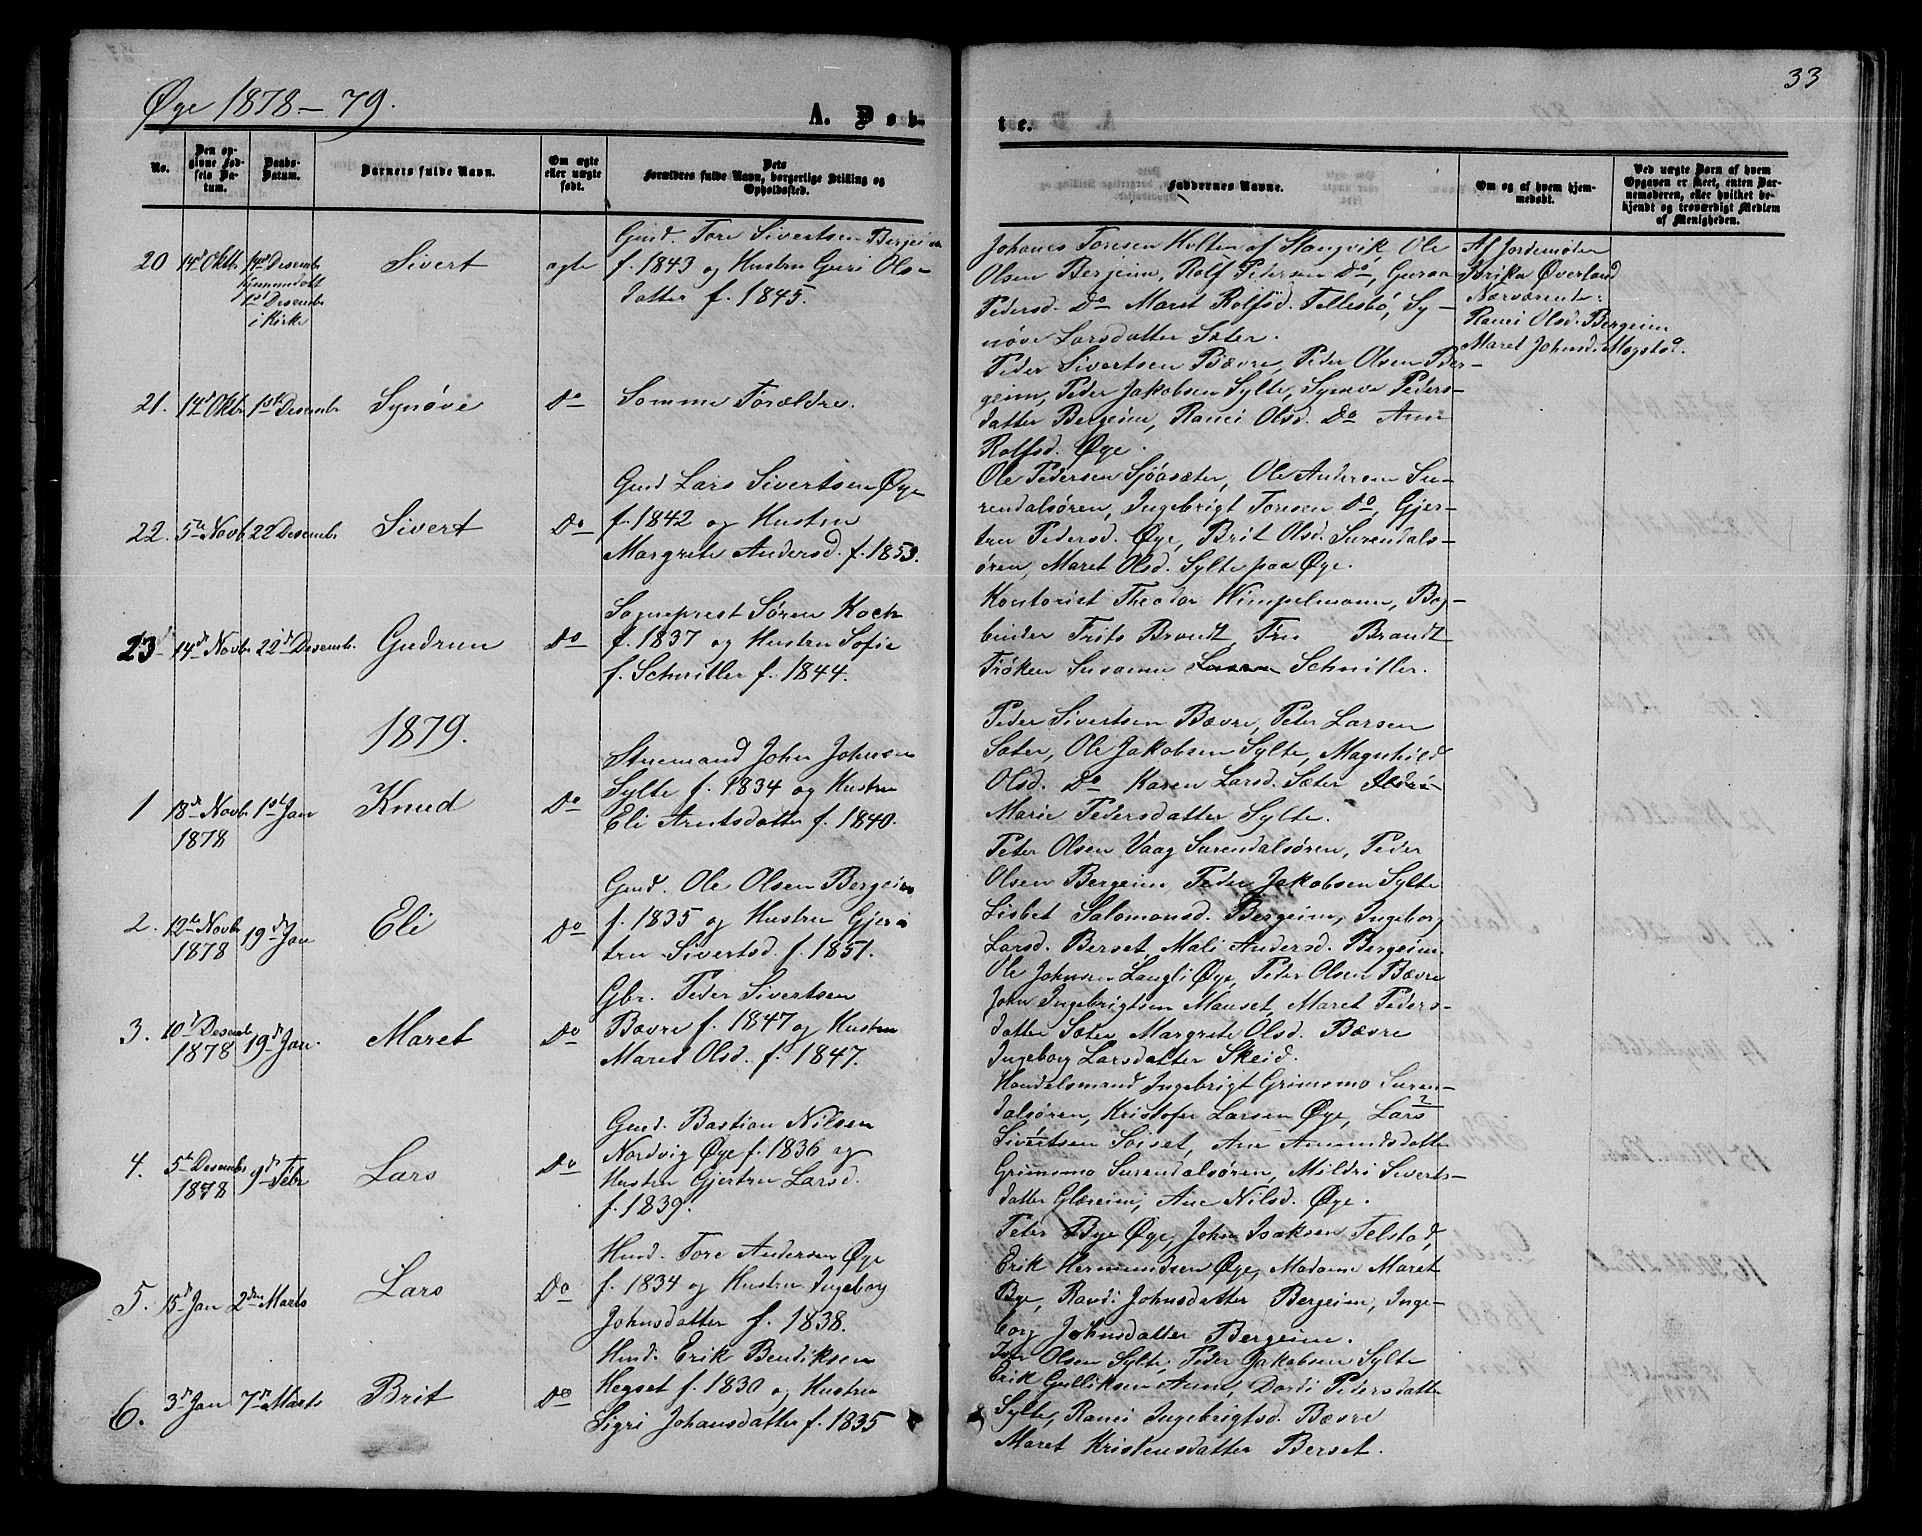 Øye 1878-79.
33
A. Døb-
te.
No.
Den op-
givne Fød-
sels Da-
tum.
Daabs-
Datum.
Barnets fulde Navn.
Om ægte
eller uægte
født.
Dets
Forældres fulde Navn, borgerlige Stilling og
Opholdssted.
Faddernes Navne.
Om og af hvem hjem-
medøbt.
Ved uægte Børn af hvem
Opgaven er skeet, enten Bar-
nemoderen, eller hvilket be-
kjendt og troværdigt Medlem
af Menigheden.
20 14d Oktb.
14de Desembr
hjemmedøbt
1st Desembr
i Kirke
Sivert
ægte
Gmd. Tore Sivertsen Bergeim
f. 1843 og Hustru Guri Ols-
datter f. 1845.
Johanes Toresen Holten af Stangvik, Ole
Olsen Bergeim, Rolf Pedersen Do, Guroa
Pedersd. Do Maret Rolfsd. Tellesbø, Sy-
nøve Larsdatter Sæter.
Af Jordemoder
Brika Øverland
Nærværende:
Ranei Olsd. Bergeim
Maret Johnsd. Mogstad.
21. 14d Oktbr 1st Desembr
Synøve
Do
Somme Forældre.
Peder Sivertsen Bævre, Peder Olsen Ber-
geim, Peder Jakobsen Sylte, Synøve Peders-
datter Bergeim, Ranei Olsd. Do Ane
Rolfsd. Øye.
22. 5te Novb. 22 Desembr
Sivert
Do
Gmd Lars Sivertsen Øye
f. 1842 og Hustru
Margrete Andersd. f. 1853.
Ole Pedersen Sjøasæter, Ole Andersen Su-
rendalsøren, Ingebrigt Toresen Do, Gjer-
tru Pedersd. Øye, Brit Olsd. Surendals-
øren, Maret Olsd. Sylte paa Øye.
23 14d Novbr 22d Desembr.
Gudrun
Do
Sogneprest Søren Koch
f. 1837 og Hustru Sofie
f. Schnitler f. 1844.
Kontorist Theodor Wimpelmann, Bog-
binder Frits Brandt, Fru Brandt
Frøken Susanne Schnitler.
1879.
1 18d Novbr 1st Jan
1878
Knud
Do
Struemand John Johnsen
Sylte f. 1834 og Hustru
Eli Arntsdatter f. 1840.
Peder Sivertsen Bævre, Peter Larsen
Sæter, Ole Jakobsen Sylte, Magnhild
Olsd. Do Karen Larsd. Sæter
Marie Pedersdatter Sylte.
2. 12te Novbr 19d Jan
1878
Eli
Do
Gmd. Ole Olsen Bergeim
f. 1835 og Hustru Gjer-
tru Sivertsd. f. 1851.
Peter Olsen Vaag Surendalsøren, Peder
Olsen Bergeim, Peder Jakobsen Sylte
Lisbet Salomonsd. Bergeim, Ingeborg
Larsd. Berset, Mali Andersd. Bergeim.
3. 10d Desemb 19d Jan.
1878
Maret
Do
Gbr. Peder Sivertsen
Bævre f. 1847 og Hustru
Maret Olsd. f. 1847.
Ole Johnsen Langli Øye, Peder Olsen Bævre
John Ingebrigtsen Mauset, Maret Peders-
datter Sæter, Margrete Olsd. Bævre
Ingeborg Larsdatter Skeid.
4. 5te Desembr 9d Febr
1878
Lars
Do
Gmd. Bastian Nilsen
Nordvig Øye f. 1836 og
Hustru Gjertru Larsd.
f. 1839.
Handelsmand Ingebrigt Grimsmo Suren-
dalsøren, Kristofer Larsen Øye, Lars
Sivertsen Soiset, Ane Amundsdatter
Grimsmo Surendalsøren, Mildri Siverts-
datter Glæreim, Ane Nilsd. Øye.
5. 15d Jan 2den Marts
Lars
Do
Husd. Tore Andersen Øye
f. 1834 og Hustru Ingeborg
Johnsdatter f. 1838.
Peter Bye Øye, John Isaksen Telstad,
Erik Hermundsen Øye, Madame Maret
Bye, Randi Johnsdatter Bergeim, Inge-
borg Johnsdatter Bergeim.
6. 3d Jan 7d Marts
Brit
Do
Husd. Erik Bendiksen
Hegset f. 1830 og Hustru
Sigri Johansdatter f. 1835
Iver Olsen Sylte, Peder Jakobsen Sylte
Erik Gulliksen Aune, Dordi Pedersdatter
Sylte, Ranei Ingebrigtsd. Bævre
Maret Kristensdatter Berset.